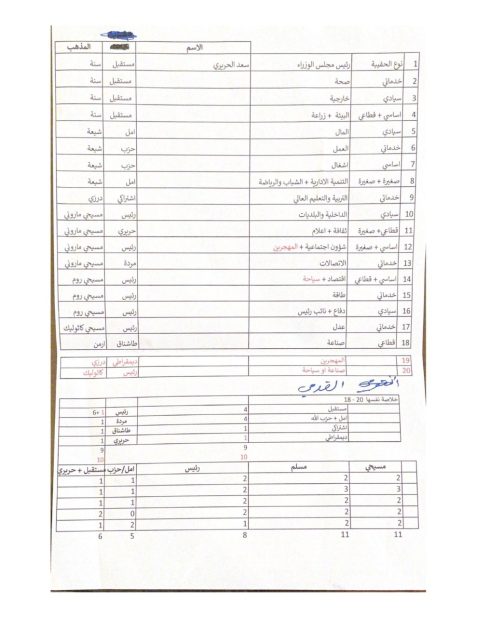 الاسم المذهب
1 نوع الحقيبة رئيس مجلس الوزراء سعد الحريري مستقبل سنة
2 خدماتي صحة مستقبل سنة
3 سيادي خارجية مستقبل سنة
4 اساسي + قطاعي البيئة + زراعة مستقبل سنة
5 سيادي المال امل شيعة
6 خدماتي العمل حزب شيعة
7 اساسي اشغال حزب شيعة
8 صغيرة + صغيرة التنمية الادارية + الشباب والرياضة امل شيعة
9 خدماتي التربية والتعليم العالي اشتراكي درزي
10 سيادي الداخلية والبلديات رئيس مسيحي ماروني
11 قطاعي+ صغيرة ثقافة + اعلام حريري مسيحي ماروني
12 اساسي + صغيرة شؤون اجتماعية + المهجرين رئيس مسيحي ماروني
13 خدماتي الاتصالات مردة مسيحي ماروني
14 اساسي + قطاعي اقتصاد + سياحة رئيس مسيحي روم
15 خدماتي طاقة رئيس مسيحي روم
16 سيادي دفاع + نائب رئيس رئيس مسيحي روم
17 خدماتي عدل رئيس مسيحي كاثوليك
18 قطاعي صناعة طاشناق ارمن
19 المهجرين ديمقراطي درزي
20 صناعة او سياحة رئيس كاثوليك
خلاصة نفسها 20 - 18
مستقبل 4 رئيس 1 +6
امل + حزب الله 4 مردة 1
اشتراكي 1 طاشناق 1
ديمقراطي 1 حريري 1
9 9
10 10
مسيحي مسلم رئيس امل/حزب مستقبل + حريري
2 2 2 1 1
3 3 2 1 1
2 2 2 1 1
2 2 2 0 2
2 2 1 2 1
11 11 8 5 6